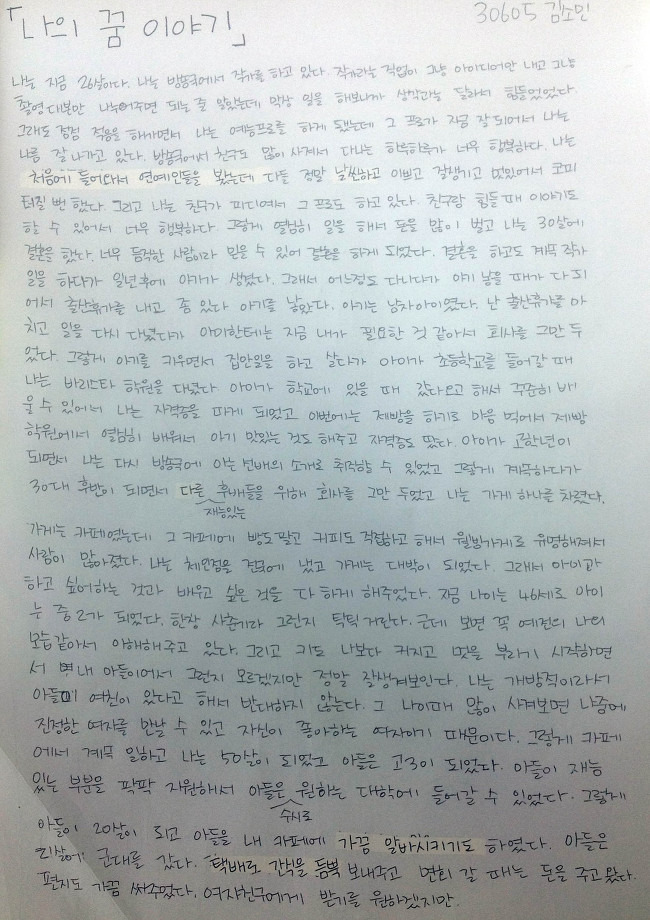 「나의 꿈 이야기」
30605 김소민
나는 지금 26살이다. 나는 방송국에서 작가를 하고 있다. 작가라는 직업이 그냥 아이디어만 내고 그냥
촬영 대본만 나눠어주면 되는 줄 알았는데 막상 일을 해보니까 생각과는 달라서 힘들었었다.
그래도 점점 적응을 해가면서 나는 예능프로를 하게 됐는데 그 프로가 지금 잘 되어서 나는
나름 잘 나가고 있다. 방송국에서 친구도 많이 사겨서 다니는 하루하루가 너무 행복하다. 나는
처음에 들어와서 연예인들을 봤는데 다들 정말 날씬하고 이쁘고 잘생기고 멋있어서 코피
터질 뻔 했다. 그리고 나는 친구가 피디여서 그 프로도 하고 있다. 친구랑 힘들 때 이야기도
할 수 있어서 너무 행복하다. 그렇게 열심히 일을 해서 돈을 많이 벌고 나는 30살에
결혼을 했다. 너무 듬직한 사람이라 믿을 수 있어 결혼을 하게 되었다. 결혼을 하고도 계속 작가
일을 하다가 일년후에 아기가 생겼다. 그래서 어느정도 다니다가 아기 낳을 때가 다 되
어서 출산휴가를 내고 좀 있다 아기를 낳았다. 아기는 남자아이였다. 난 출산휴가를 마
치고 일을 다시 다녔다가 아이한테는 지금 내가 필요한 것 같아서 회사를 그만 두
었다. 그렇게 아기를 키우면서 집안일을 하고 살다가 아이가 초등학교를 들어갈 때
나는 바리스타 학원을 다녔다. 아이가 학교에 있을 때 갔다오고 해서 꾸준히 배
울 수 있어서 나는 자격증을 따게 되었고 이번에는 제빵을 하기로 마음 먹어서 제빵
학원에서 열심히 배워서 아기 맛있는 것도 해주고 자격증도 땄다. 아이가 고학년이
되면서 나는 다시 방송국에 아는 선배의 소개로 취직할 수 있었고 그렇게 계속하다가
30대 후반이 되면서 다른 후배들을 위해 회사를 그만 두었고 나는 가게 하나를 차렸다.
재능있는
가게는 카페였는데 그 카페에 빵도 팔고 커피도 직접하고 해서 웰빙가게로 유명해져서
사람이 많아졌다. 나는 체인점을 전국에 냈고 가게는 대박이 되었다. 그래서 아이가
하고 싶어하는 것과 배우고 싶은 것을 다 하게 해주었다. 지금 나이는 46세로 아이
는 중2가 되었다. 한창 사춘기라 그런지 틱틱 거린다. 근데 보면 꼭 예전의 나의
모습같아서 이해해주고 있다. 그리고 키도 나보다 커지고 멋을 부리기 시작하면
서 내 아들이어서 그런지 모르겠지만 정말 잘생겨보인다. 나는 개방적이라서
아들이 여친이 왔다고 해서 반대하지 않는다. 그 나이때 많이 사겨보면 나중에
진정한 여자를 만날 수 있고 자신이 좋아하는 여자이기 때문이다. 그렇게 카페
에서 계속 일하고 나는 50살이 되었고 아들은 고3이 되었다. 아들이 재능
있는 부분을 팍팍 지원해서 아들은 원하는 대학에 들어갈 수 있었다. 그렇게
수시로
아들이 20살이 되고 아들을 내 카페에 가끔 알바시키기도 하였다. 아들은
21살에 군대를 갔다. 택배로 간식을 듬뿍 보내주고 면회 갈 때는 돈을 주고 왔다.
편지도 가끔 써주었다. 여자친구에게 받기를 원하겠지만.